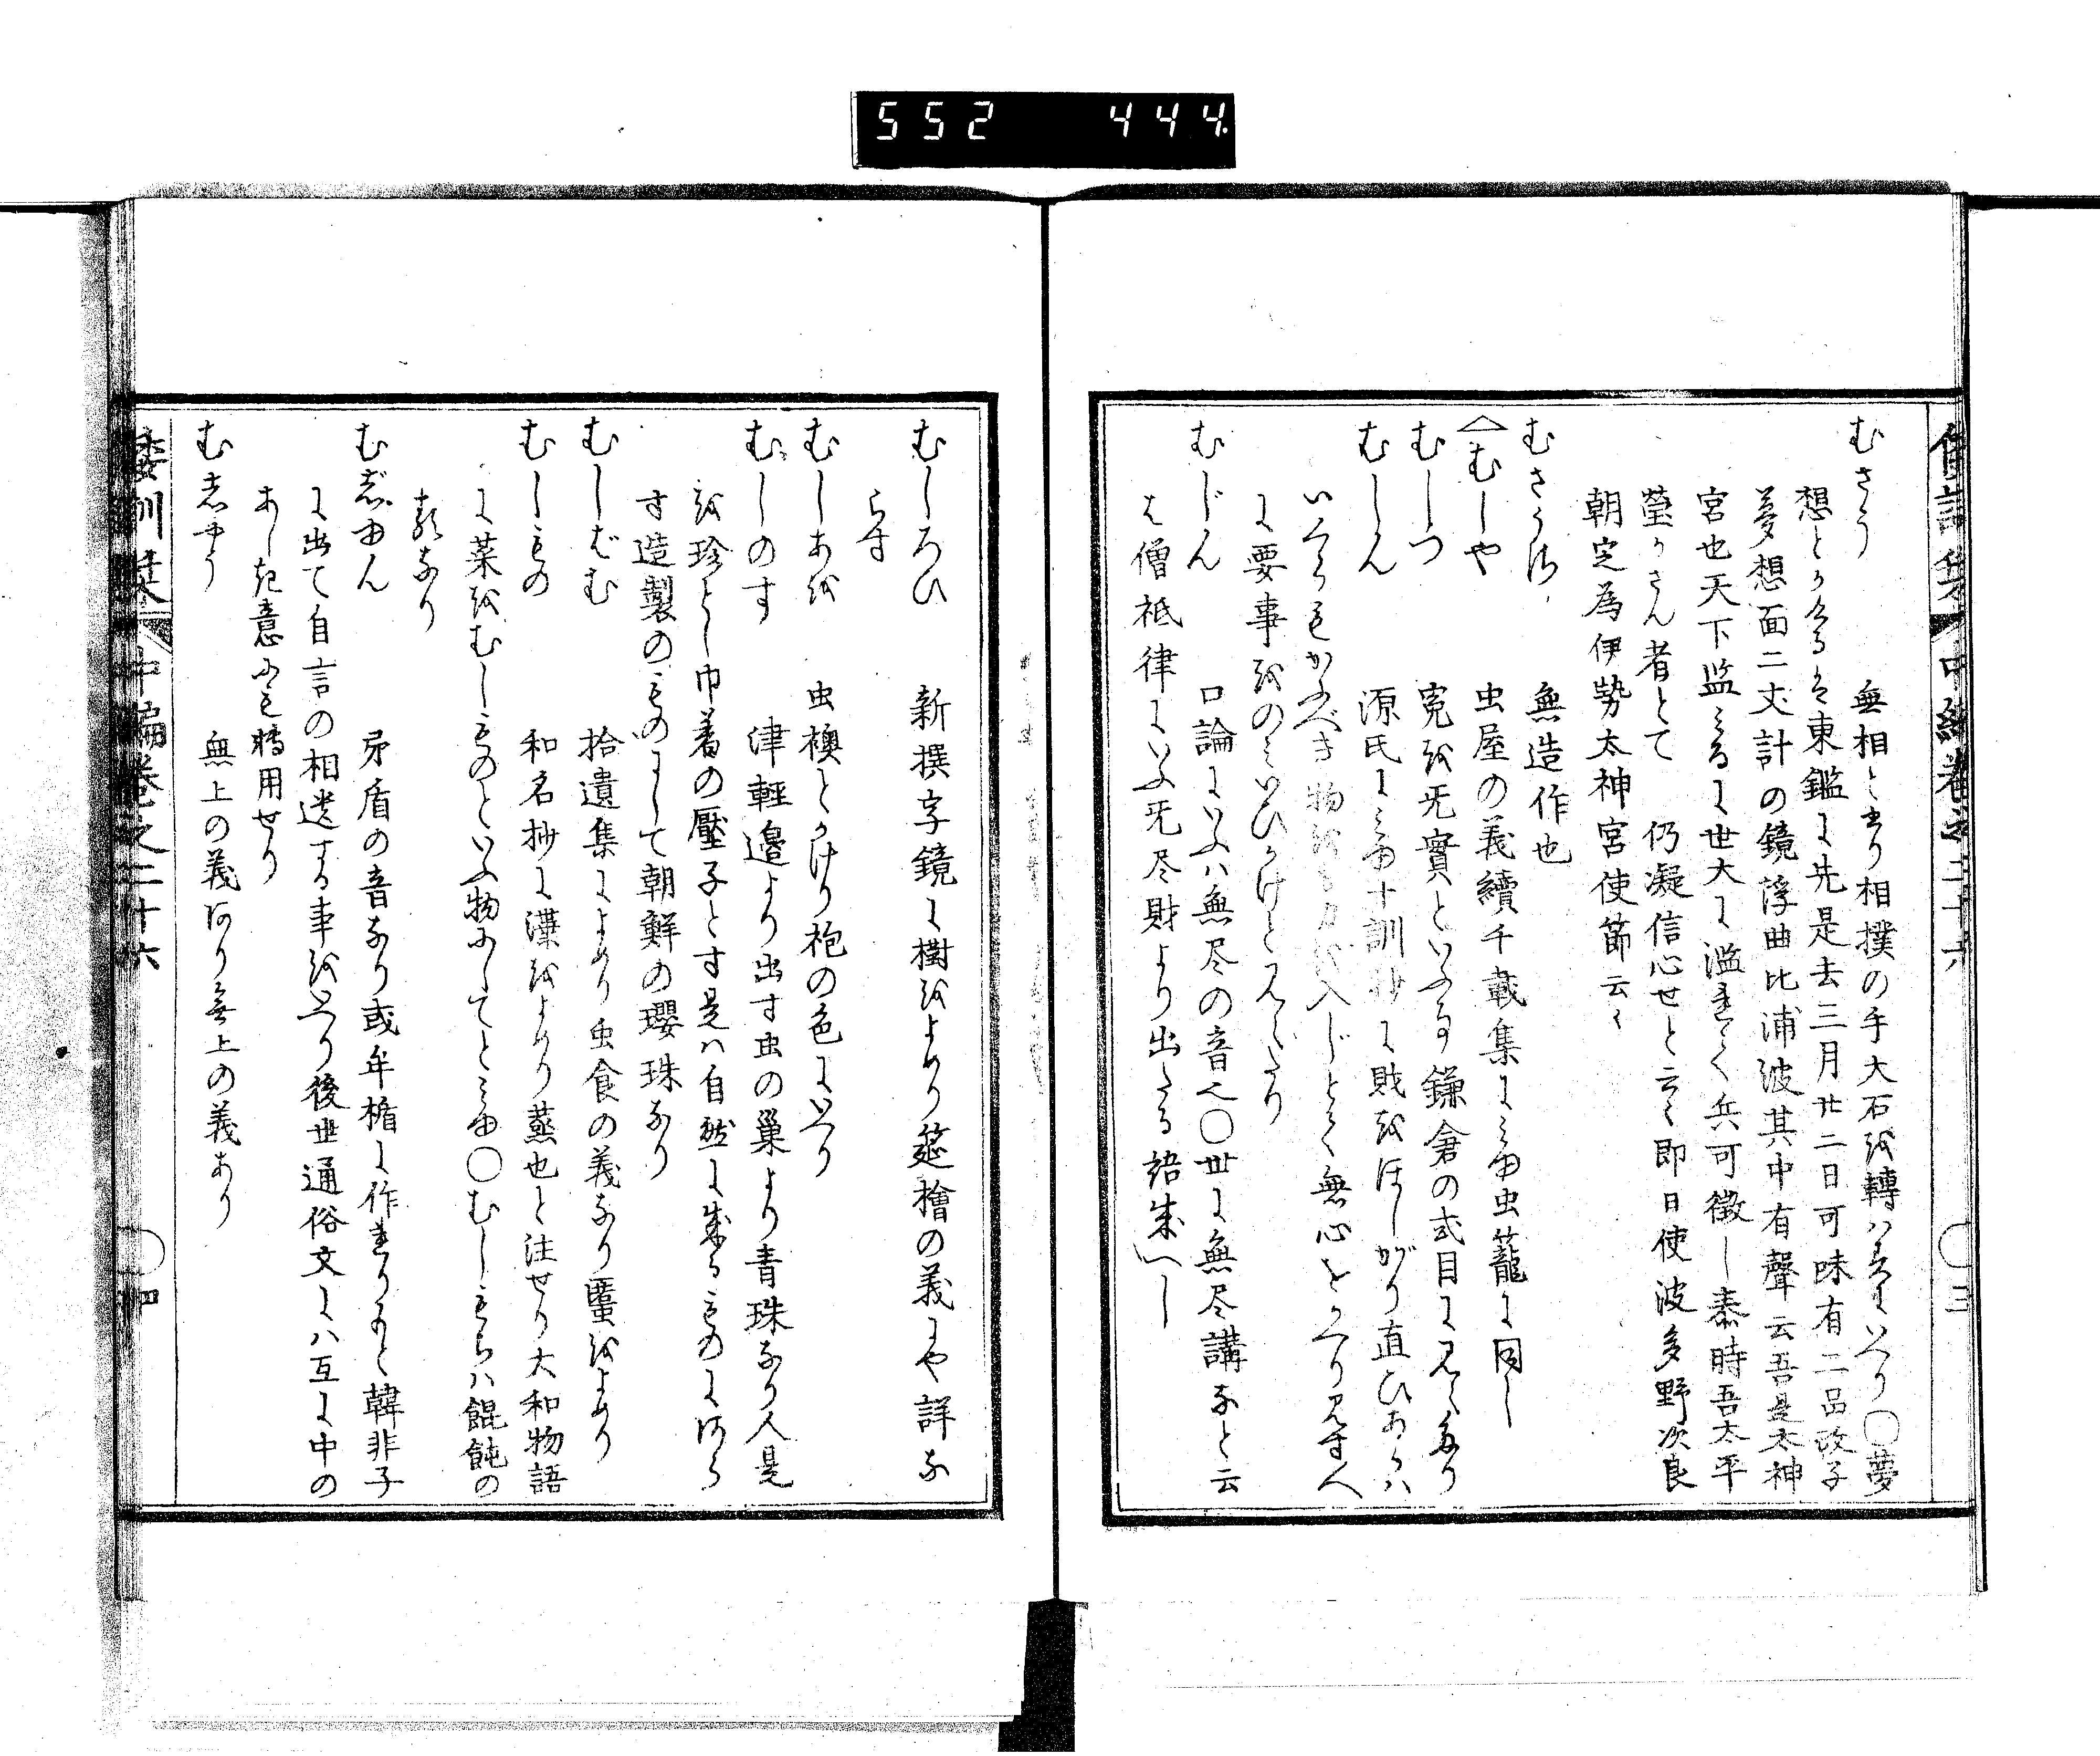 552 444
むさう 無相と書り相撲の手大石を轉ハすにいへり○夢
想とかけるは東鑑に先是去三月廿二日可味有二品政子
夢想面二丈計の鏡浮曲比浦波其中有聲云吾是太神
宮也天下監みるに世大に濫れて兵可徴し泰時吾太平
瑩かさん者とて 仍凝信心せと云々即日使波多野次良
朝定為伊勢太神宮使節云々
むさうさ 無造作也
△むしや 虫屋の義續千載集にみゆ虫籠に同し
むしつ 寃を旡實といふ事鎌倉の式目に見えたり
むしん 源氏にみゆ十訓抄に賊をほしがり直ひあらハ
いくらもかふべき物をも乃代入じとて無心をかへり見す人
に要事をのみいひかけと見えたり
むじん 口論にいふハ無尽の音也○世に無尽講なと云
は僧祇律にいふ旡尽財より出たる諸集へし
中編巻之二十六 ○三
むしろひ 新撰字鏡に樹をよめり莚檜の義にや詳な
らす
むしあを 虫襖とかけり袍の色にいへり
むしのす 津輕邉より出す虫の巣より青珠なり人是
を珍とし巾着の壓子とす是ハ自然に成るものにあら
す造製のものにして朝鮮の瓔珠なり
むしばむ 拾遺集によめり虫食の義なり𧕒をよめり
むしもの 和名抄に㵄をよめり蒸也と注せり大和物語
に菜をむしものといふ物にしてとみゆ○むしもちハ餛飩の
類なり
むじゆん 矛盾の音なり或牟楯に作れりもと韓非子
に出て自言の相違する事をいへり後世通俗文にハ互に中の
あしき意にも轉用せり
むじやう 無上の義あり無上の義あり
倭訓栞 中編巻之二十六 ○四